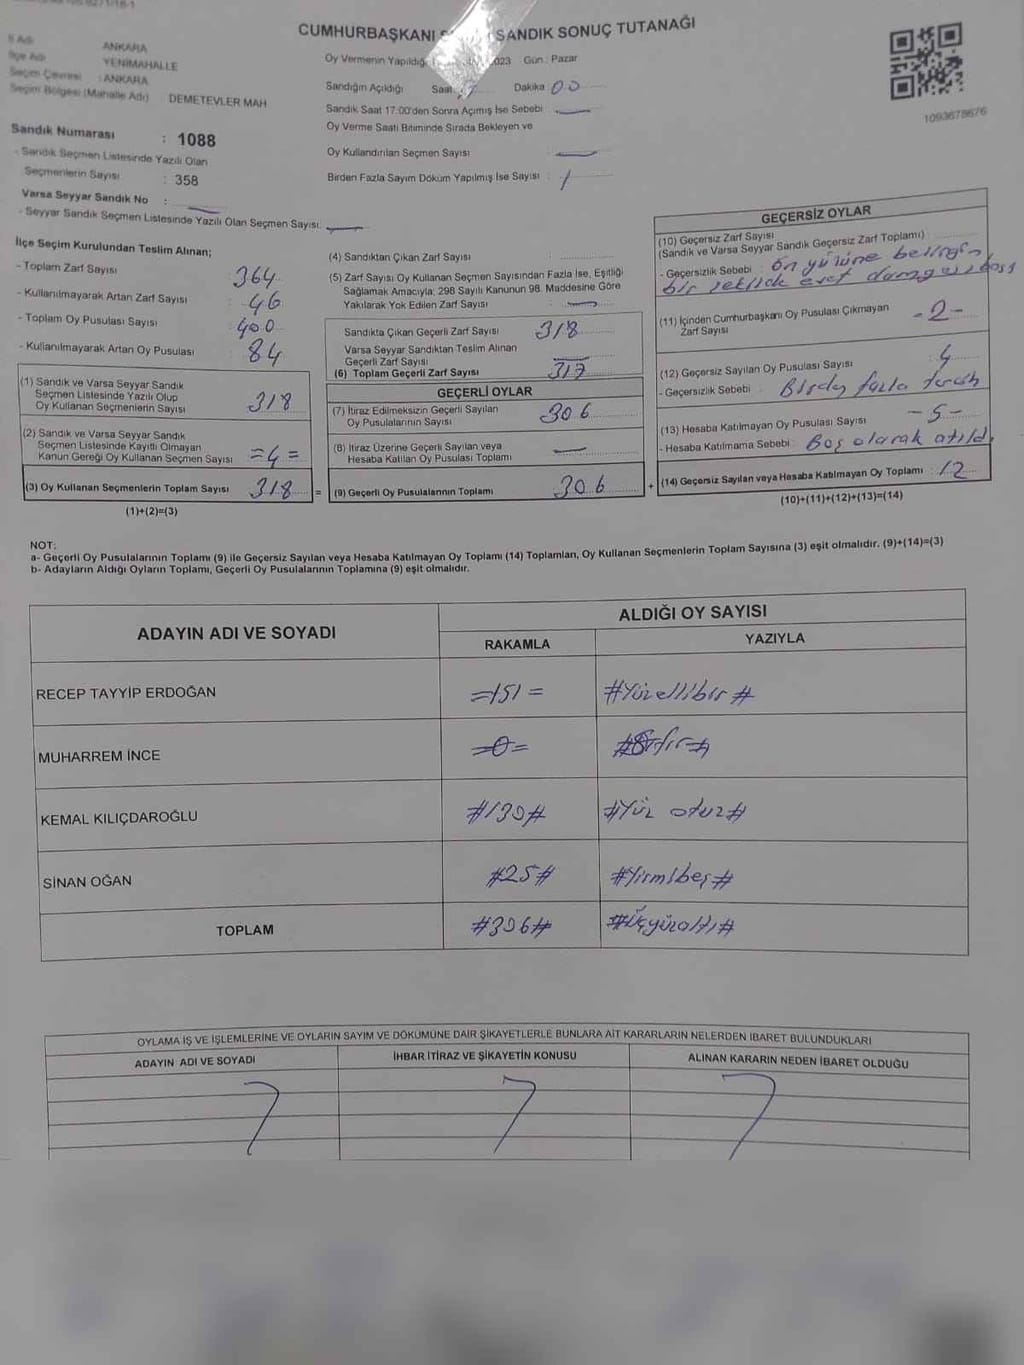 CUMHURBAŞKANI SANDIK SONUÇ TUTANAĞI
İl Adı ANKARA
İlçe Adı YENİMAHALLE
Seçim Çevresi : ANKARA
Seçim Bölgesi (Mahalle Adı) DEMETEVLER MAH
Sandık Numarası : 1088
- Sandık Seçmen Listesinde Yazılı Olan
Seçmenlerin Sayısı : 358
Varsa Seyyar Sandık No :
- Seyyar Sandık Seçmen Listesinde Yazılı Olan Seçmen Sayısı:
Oy Vermenin Yapıldığı 023 Gün : Pazar
Sandığın Açıldığı Saat Dakika : 00
Sandık Saat 17:00'den Sonra Açımış İse Sebebi
Oy Verme Saati Bitiminde Sırada Bekleyen ve
Oy Kullandırılan Seçmen Sayısı :
Birden Fazla Sayım Döküm Yapılmış İse Sayısı :
1093678676
İlçe Seçim Kurulundan Teslim Alınan;
- Toplam Zarf Sayısı : 364
- Kullanılmayarak Artan Zarf Sayısı : 46
- Toplam Oy Pusulası Sayısı : 400
- Kullanılmayarak Artan Oy Pusulası : 84
(1) Sandık ve Varsa Seyyar Sandık
Seçmen Listesinde Yazılı Olup
Oy Kullanan Seçmenlerin Sayısı : 318
(2) Sandık ve Varsa Seyyar Sandık
Seçmen Listesinde Kayıtlı Olmayan
Kanun Gereği Oy Kullanan Seçmen Sayısı =4=
(3) Oy Kullanan Seçmenlerin Toplam Sayısı : 318 =
(1)+(2)=(3)
(4) Sandıktan Çıkan Zarf Sayısı :
(5) Zarf Sayısı Oy Kullanan Seçmen Sayısından Fazla İse, Eşitliği
Sağlamak Amacıyla; 298 Sayılı Kanunun 98. Maddesine Göre
Yakılarak Yok Edilen Zarf Sayısı
Sandıkta Çıkan Geçerli Zarf Sayısı 318
Varsa Seyyar Sandıktan Teslim Alınan
Geçerli Zarf Sayısı
(6) Toplam Geçerli Zarf Sayısı : 317
GEÇERLİ OYLAR
(7) İtiraz Edilmeksizin Geçerli Sayılan
Oy Pusulalarının Sayısı : 306
(8) İtiraz Üzerine Geçerli Sayılan veya
Hesaba Katılan Oy Pusulası Toplamı
(9) Geçerli Oy Pusulalarının Toplamı : 306 +
GEÇERSİZ OYLAR
(10) Geçersiz Zarf Sayısı
(Sandık ve Varsa Seyyar Sandık Geçersiz Zarf Toplamı) :
- Geçersizlik Sebebi : Ön yüzüne belirgin
bir şekilde evet damgası bası
(11) İçinden Cumhurbaşkanı Oy Pusulası Çıkmayan
Zarf Sayısı -2-
(12) Geçersiz Sayılan Oy Pusulası Sayısı : 4
- Geçersizlik Sebebi : Birden fazla tercih
(13) Hesaba Katılmayan Oy Pusulası Sayısı : -5-
- Hesaba Katılmama Sebebi : Boş olarak atıldı
(14) Geçersiz Sayılan veya Hesaba Katılmayan Oy Toplamı : 12
(10)+(11)+(12)+(13)=(14)
NOT:
a- Geçerli Oy Pusulalarının Toplamı (9) ile Geçersiz Sayılan veya Hesaba Katılmayan Oy Toplamı (14) Toplamları, Oy Kullanan Seçmenlerin Toplam Sayısına (3) eşit olmalıdır. (9)+(14)=(3)
b- Adayların Aldığı Oyların Toplamı, Geçerli Oy Pusulalarının Toplamına (9) eşit olmalıdır.
ADAYIN ADI VE SOYADI ALDIĞI OY SAYISI
RAKAMLA YAZIYLA
RECEP TAYYİP ERDOĞAN =151= #Yüzellibir#
MUHARREM İNCE =0= #Sıfır#
KEMAL KILIÇDAROĞLU #130# #Yüz otuz#
SİNAN OĞAN #25# #Yirmibeş#
TOPLAM #306# #Üçyüzaltı#
OYLAMA İŞ VE İŞLEMLERİNE VE OYLARIN SAYIM VE DÖKÜMÜNE DAİR ŞİKAYETLERLE BUNLARA AİT KARARLARIN NELERDEN İBARET BULUNDUKLARI
ADAYIN ADI VE SOYADI İHBAR İTİRAZ VE ŞİKAYETİN KONUSU ALINAN KARARIN NEDEN İBARET OLDUĞU